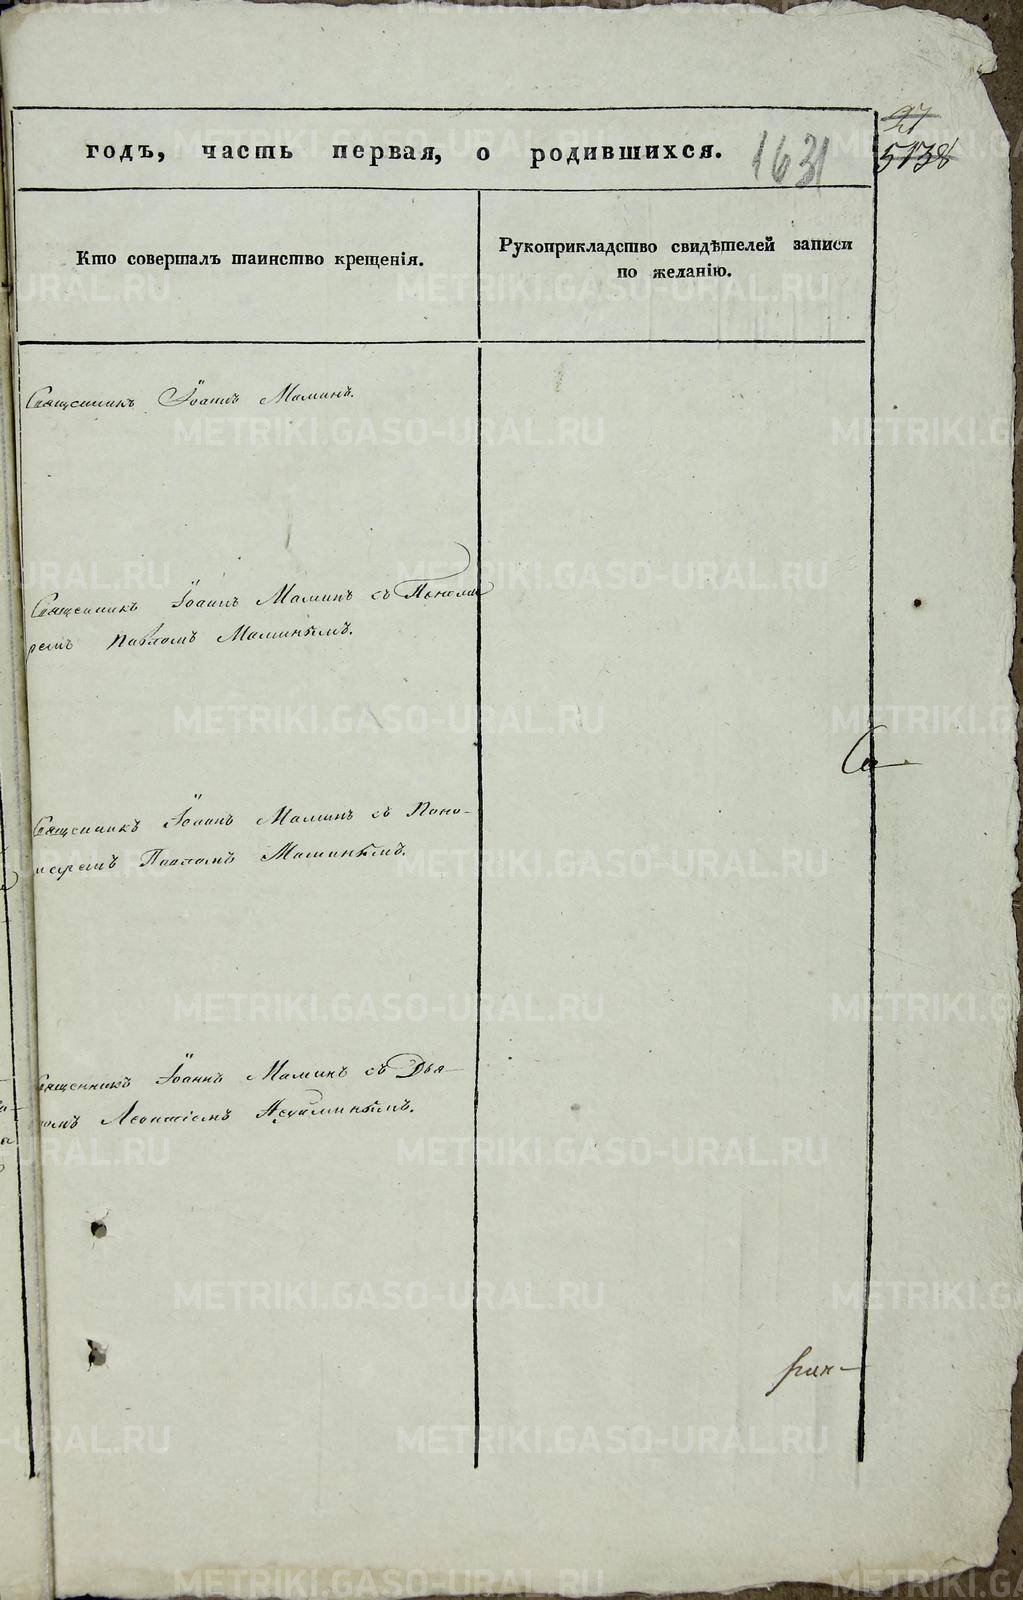 годъ, часть первая, о родившихся.
1631
27
5138
Кто совершалъ таинство крещенія.
Рукоприкладство свидѣтелей записи
по желанію.
Священникъ Іоаннъ Маминъ.
Священникъ Іоаннъ Маминъ съ Понома
ремъ Павломъ Маминымъ.
Священникъ Іоаннъ Маминъ съ Поно-
маремъ Павломъ Маминымъ.
Священникъ Іоаннъ Маминъ съ Дья-
комъ Леонтіемъ
METRIKI.GASO-URAL.RU